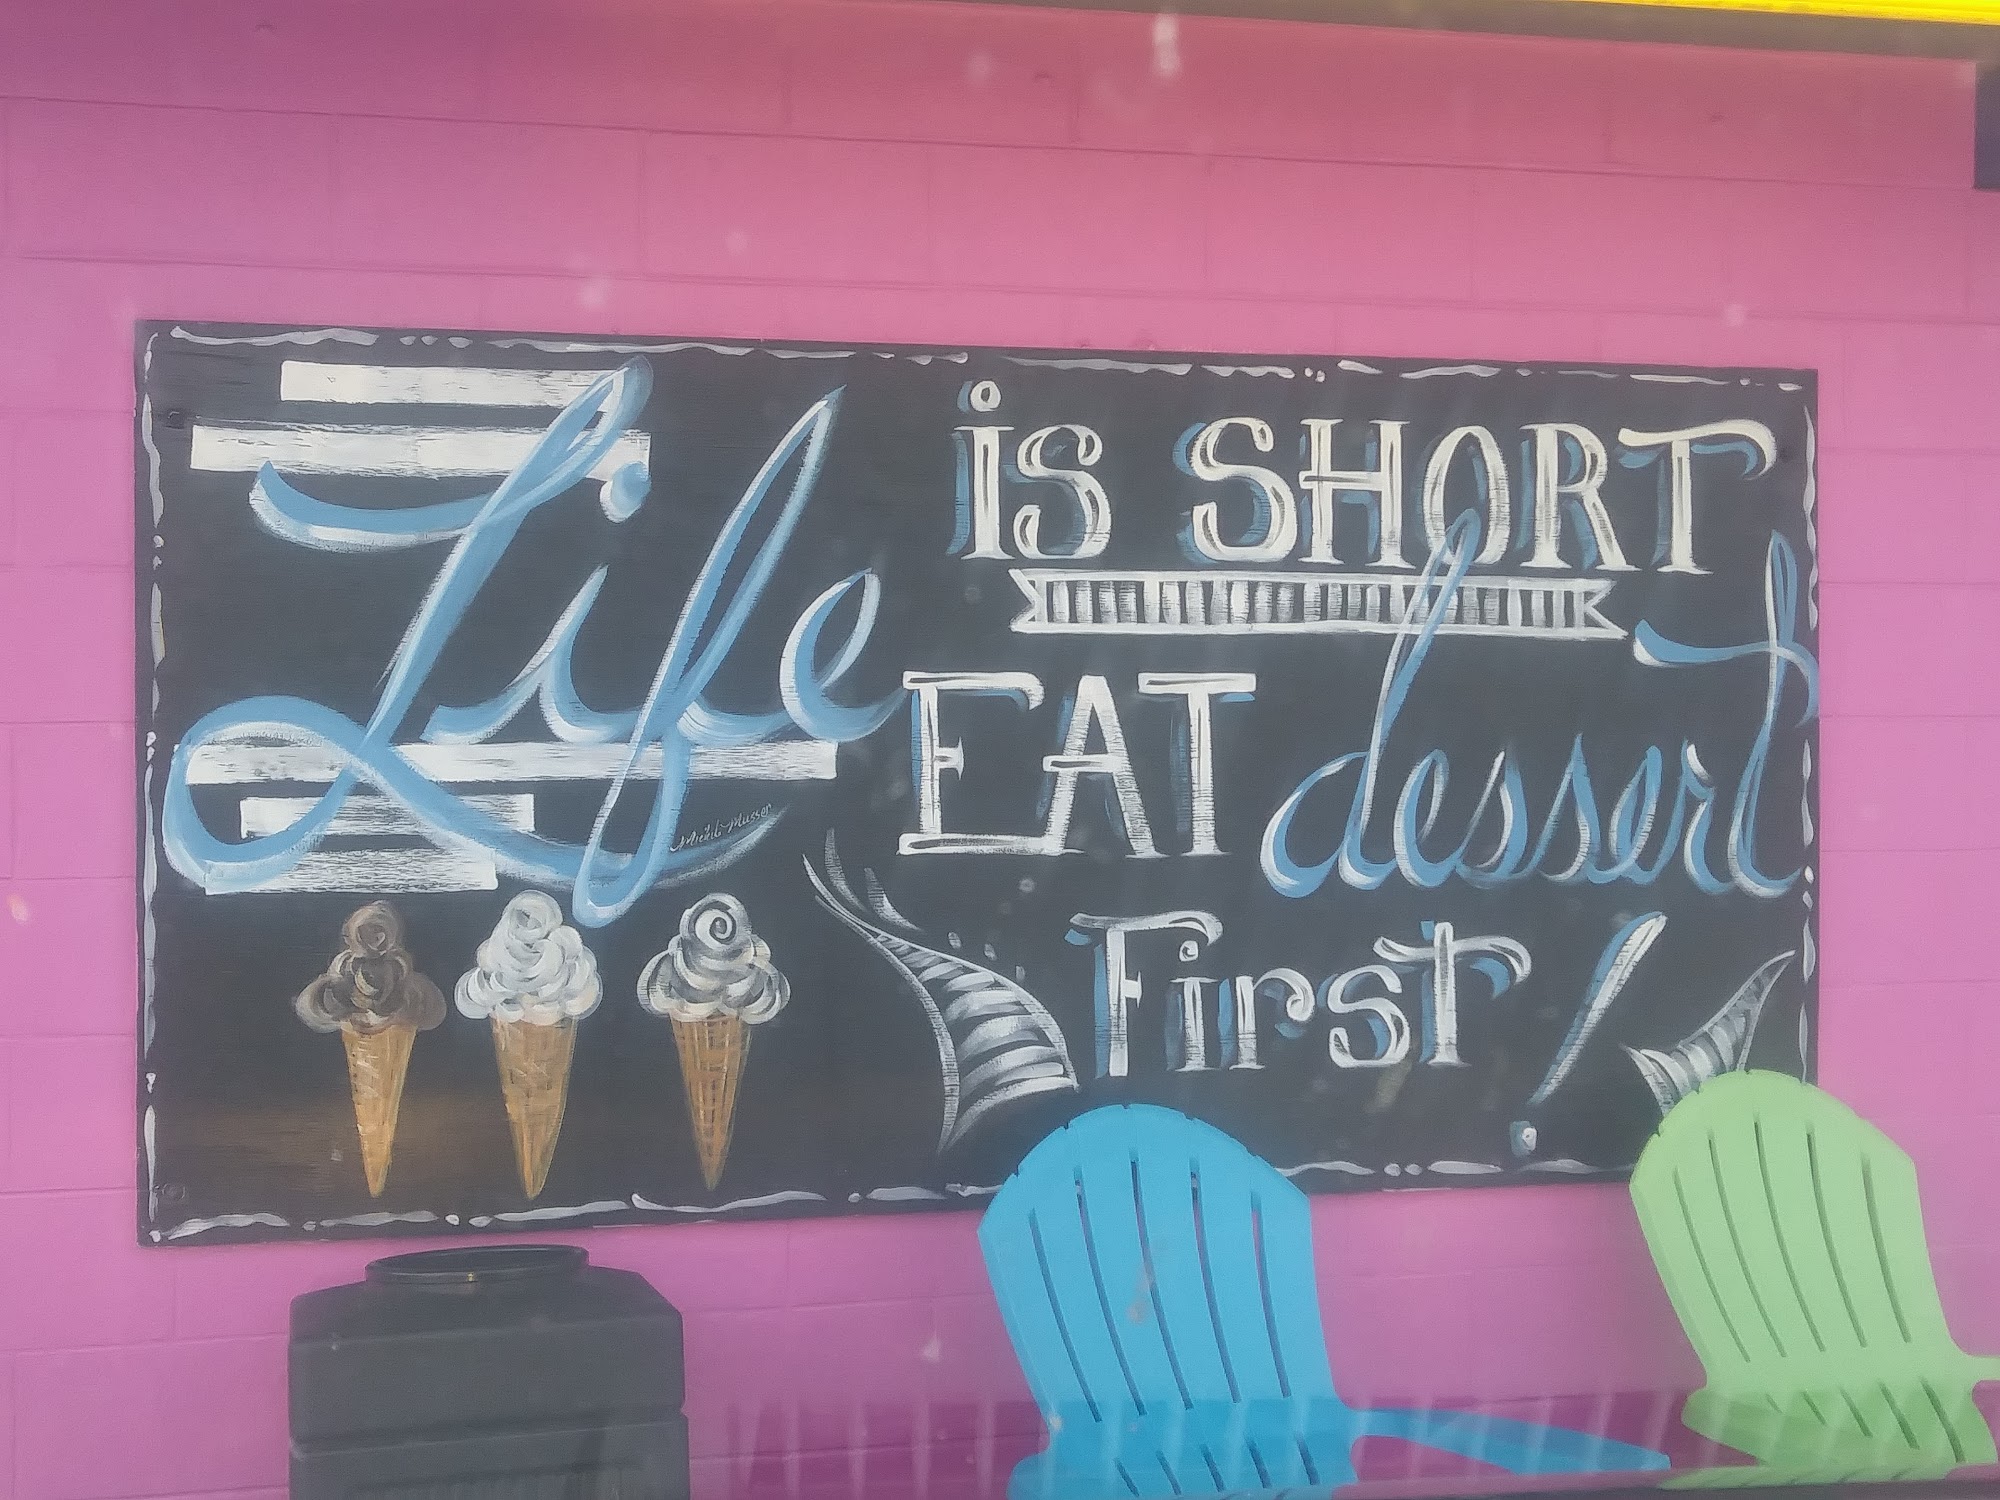 Life is SHORT
EAT dessert
First!
Musser